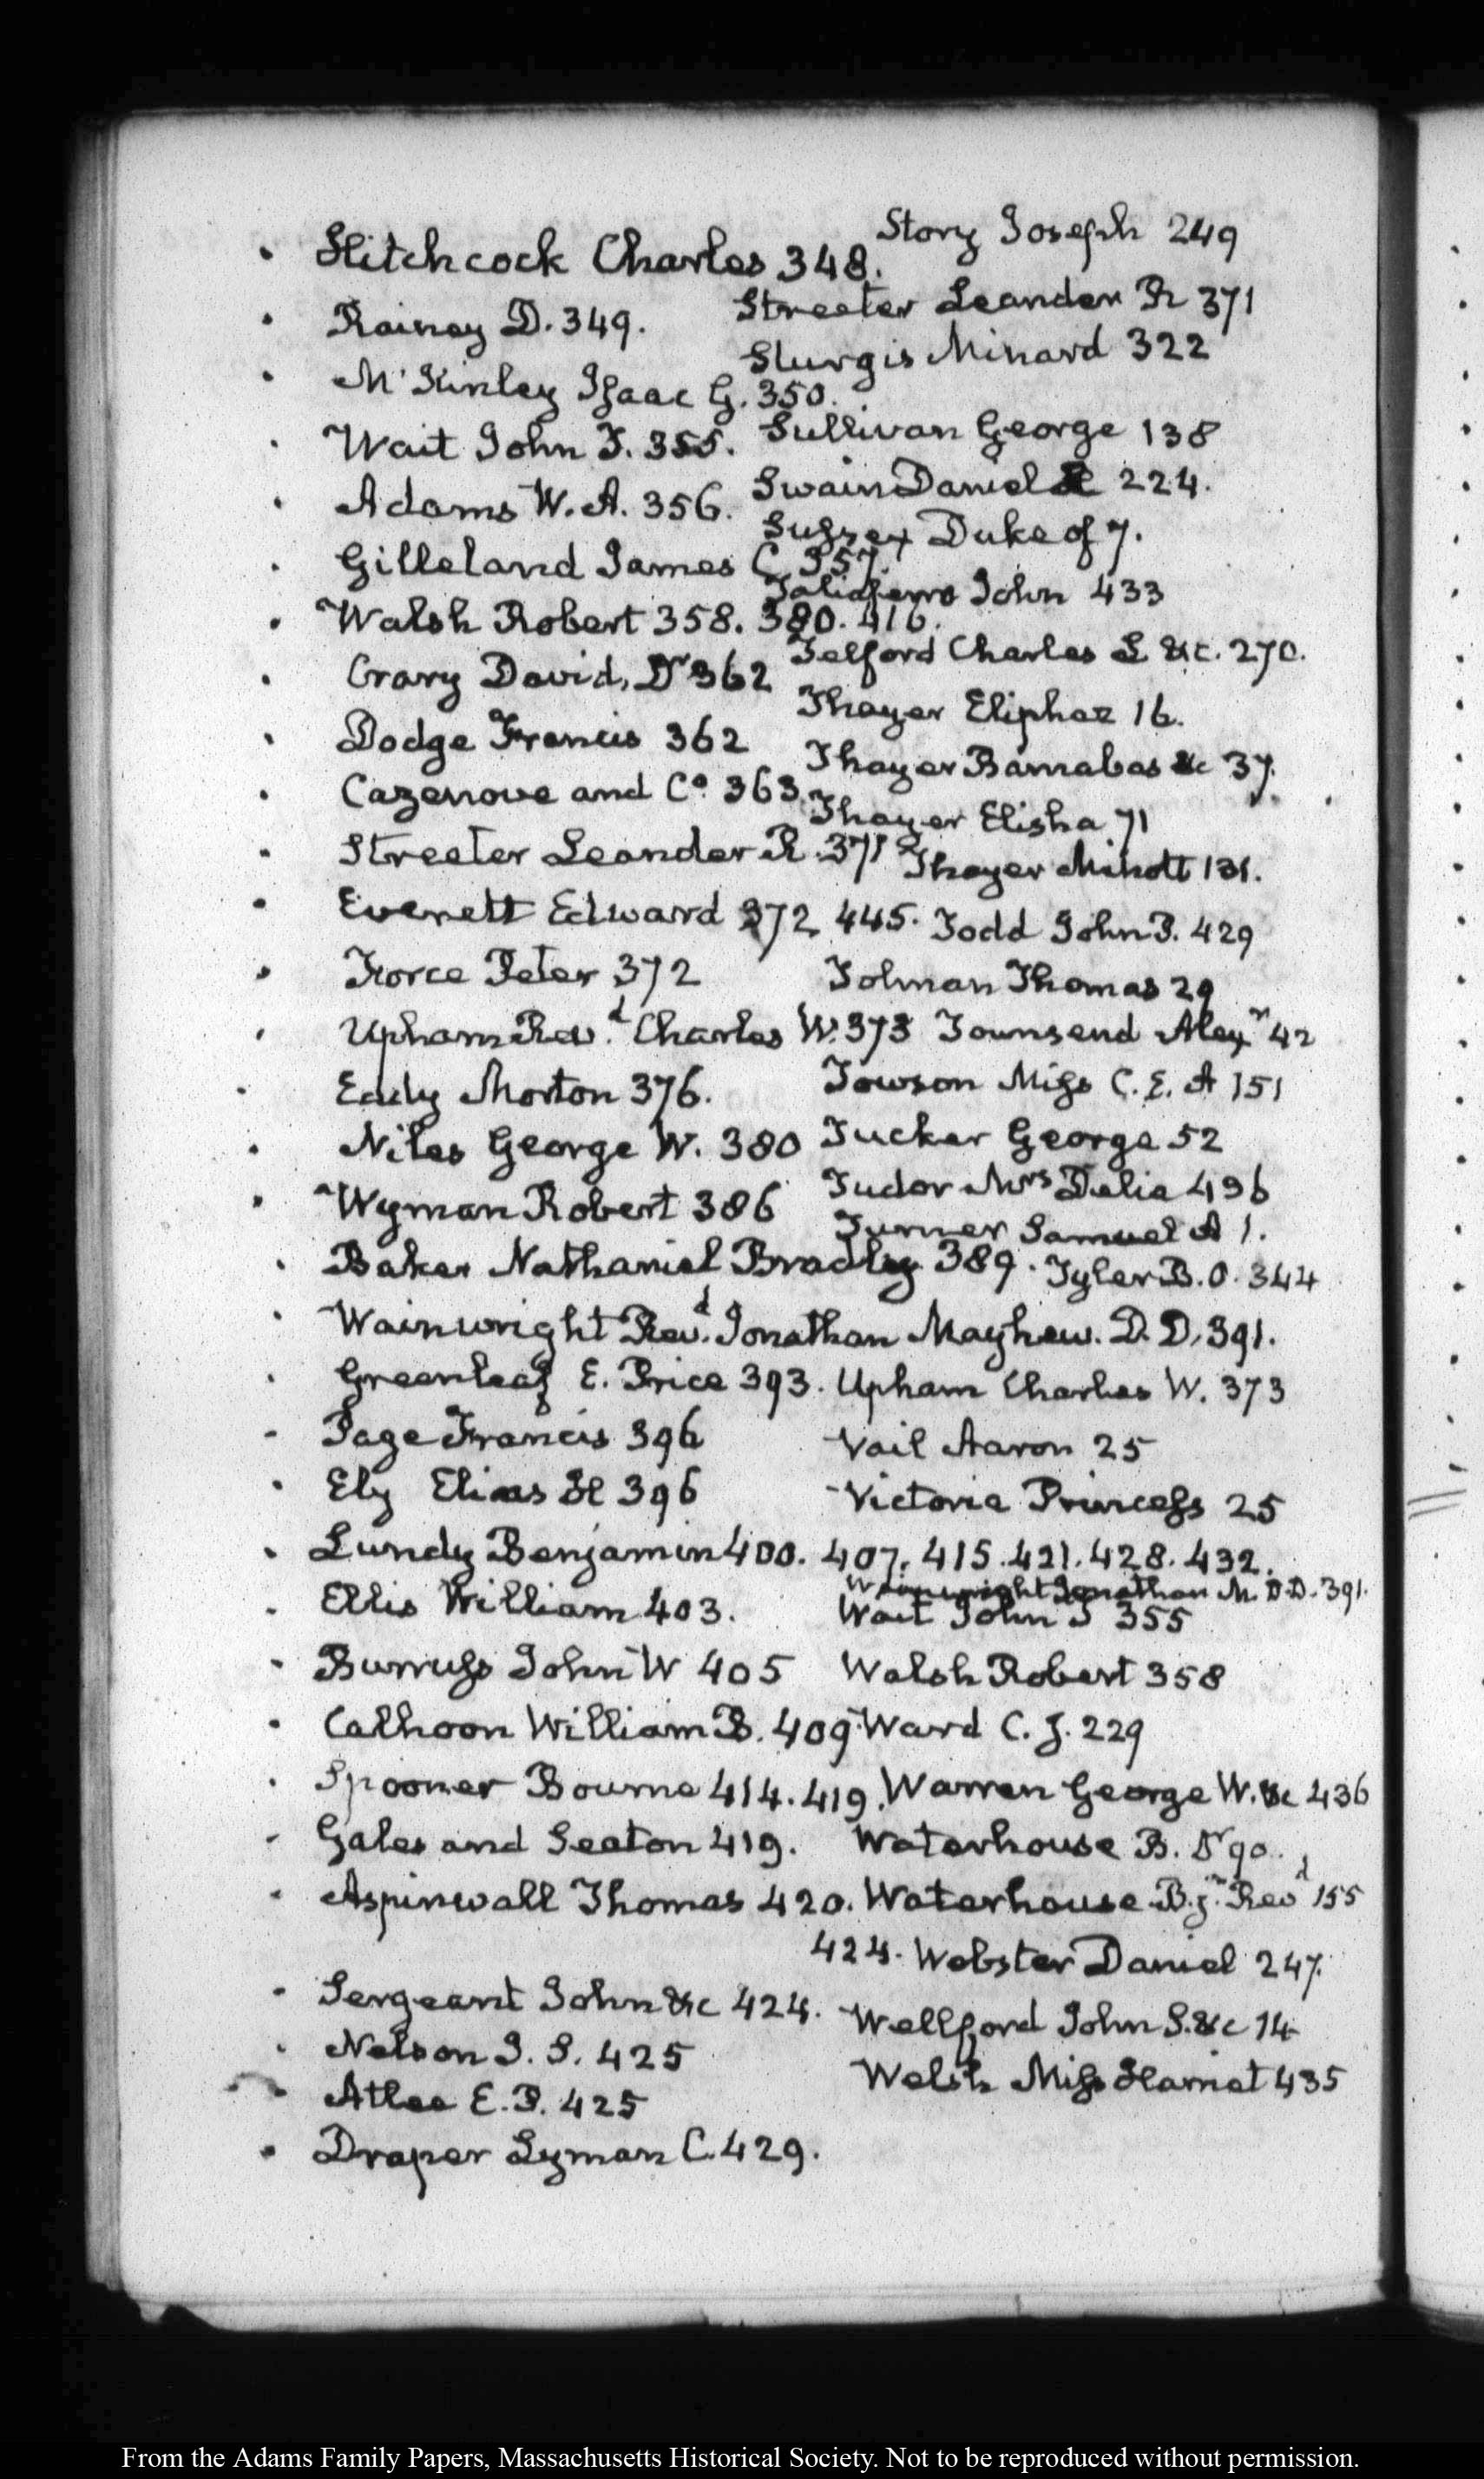 Hitchcock Charles 348.
Rainey D. 349.
McKinley Isaac G. 350.
Wait John F. 355.
Adams W. A. 356.
Gilleland James C 357.
Walsh Robert 358. 380. 416.
Crary David, Dr 362
Dodge Francis 362
Cazenove and Co. 363.
Streeter Leander R. 371
Everett Edward 372 445.
Force Peter 372
Upham Revd. Charles W. 373
Eddy Morton 376.
Niles George W. 380
Wyman Robert 386
Baker Nathaniel Bradley 389.
Wainwright Revd. Jonathan Mayhew. D. D. 391.
Greenleaf E. Price 393.
Page Francis 396
Ely Elias H 396
Lundy Benjamin 400. 407. 415. 421. 428. 432.
Ellis William 403.
Burruss John W 405
Calhoon William B. 409
Spooner Bourne 414. 419.
Gales and Seaton 419.
Aspinwall Thomas 420.
424.
Sergeant John &c 424.
Nelson J. S. 425
Atlee E. P. 425
Draper Lyman C. 429.
Story Joseph 249
Streeter Leander R 371
Sturgis Minard 322
Sullivan George 138
Swain Daniel 224.
Sussex Duke of 7.
Taliaferro John 433
Telford Charles L &c. 270.
Thayer Eliphaz 16.
Thayer Barnabas &c 37.
Thayer Elisha 71
Thayer Minott 131.
Todd John P. 429
Tolman Thomas 29
Townsend Alexr 42
Towson Miss C. E. A 151
Tucker George 52
Tudor Mrs Delia 436
Turner Samuel A 1.
Tyler B. O. 344
Upham Charles W. 373
Vail Aaron 25
Victoria Princess 25
Wainwright Jonathan M. D.D. 391.
Wait John F 355
Walsh Robert 358
Ward C. J. 229
Warren George W. &c 436
Waterhouse B. Dr 90.
Waterhouse B. jr. Revd 155
Webster Daniel 247.
Wellford John S. &c 14
Welsh Miss Harriet 435
From the Adams Family Papers, Massachusetts Historical Society. Not to be reproduced without permission.